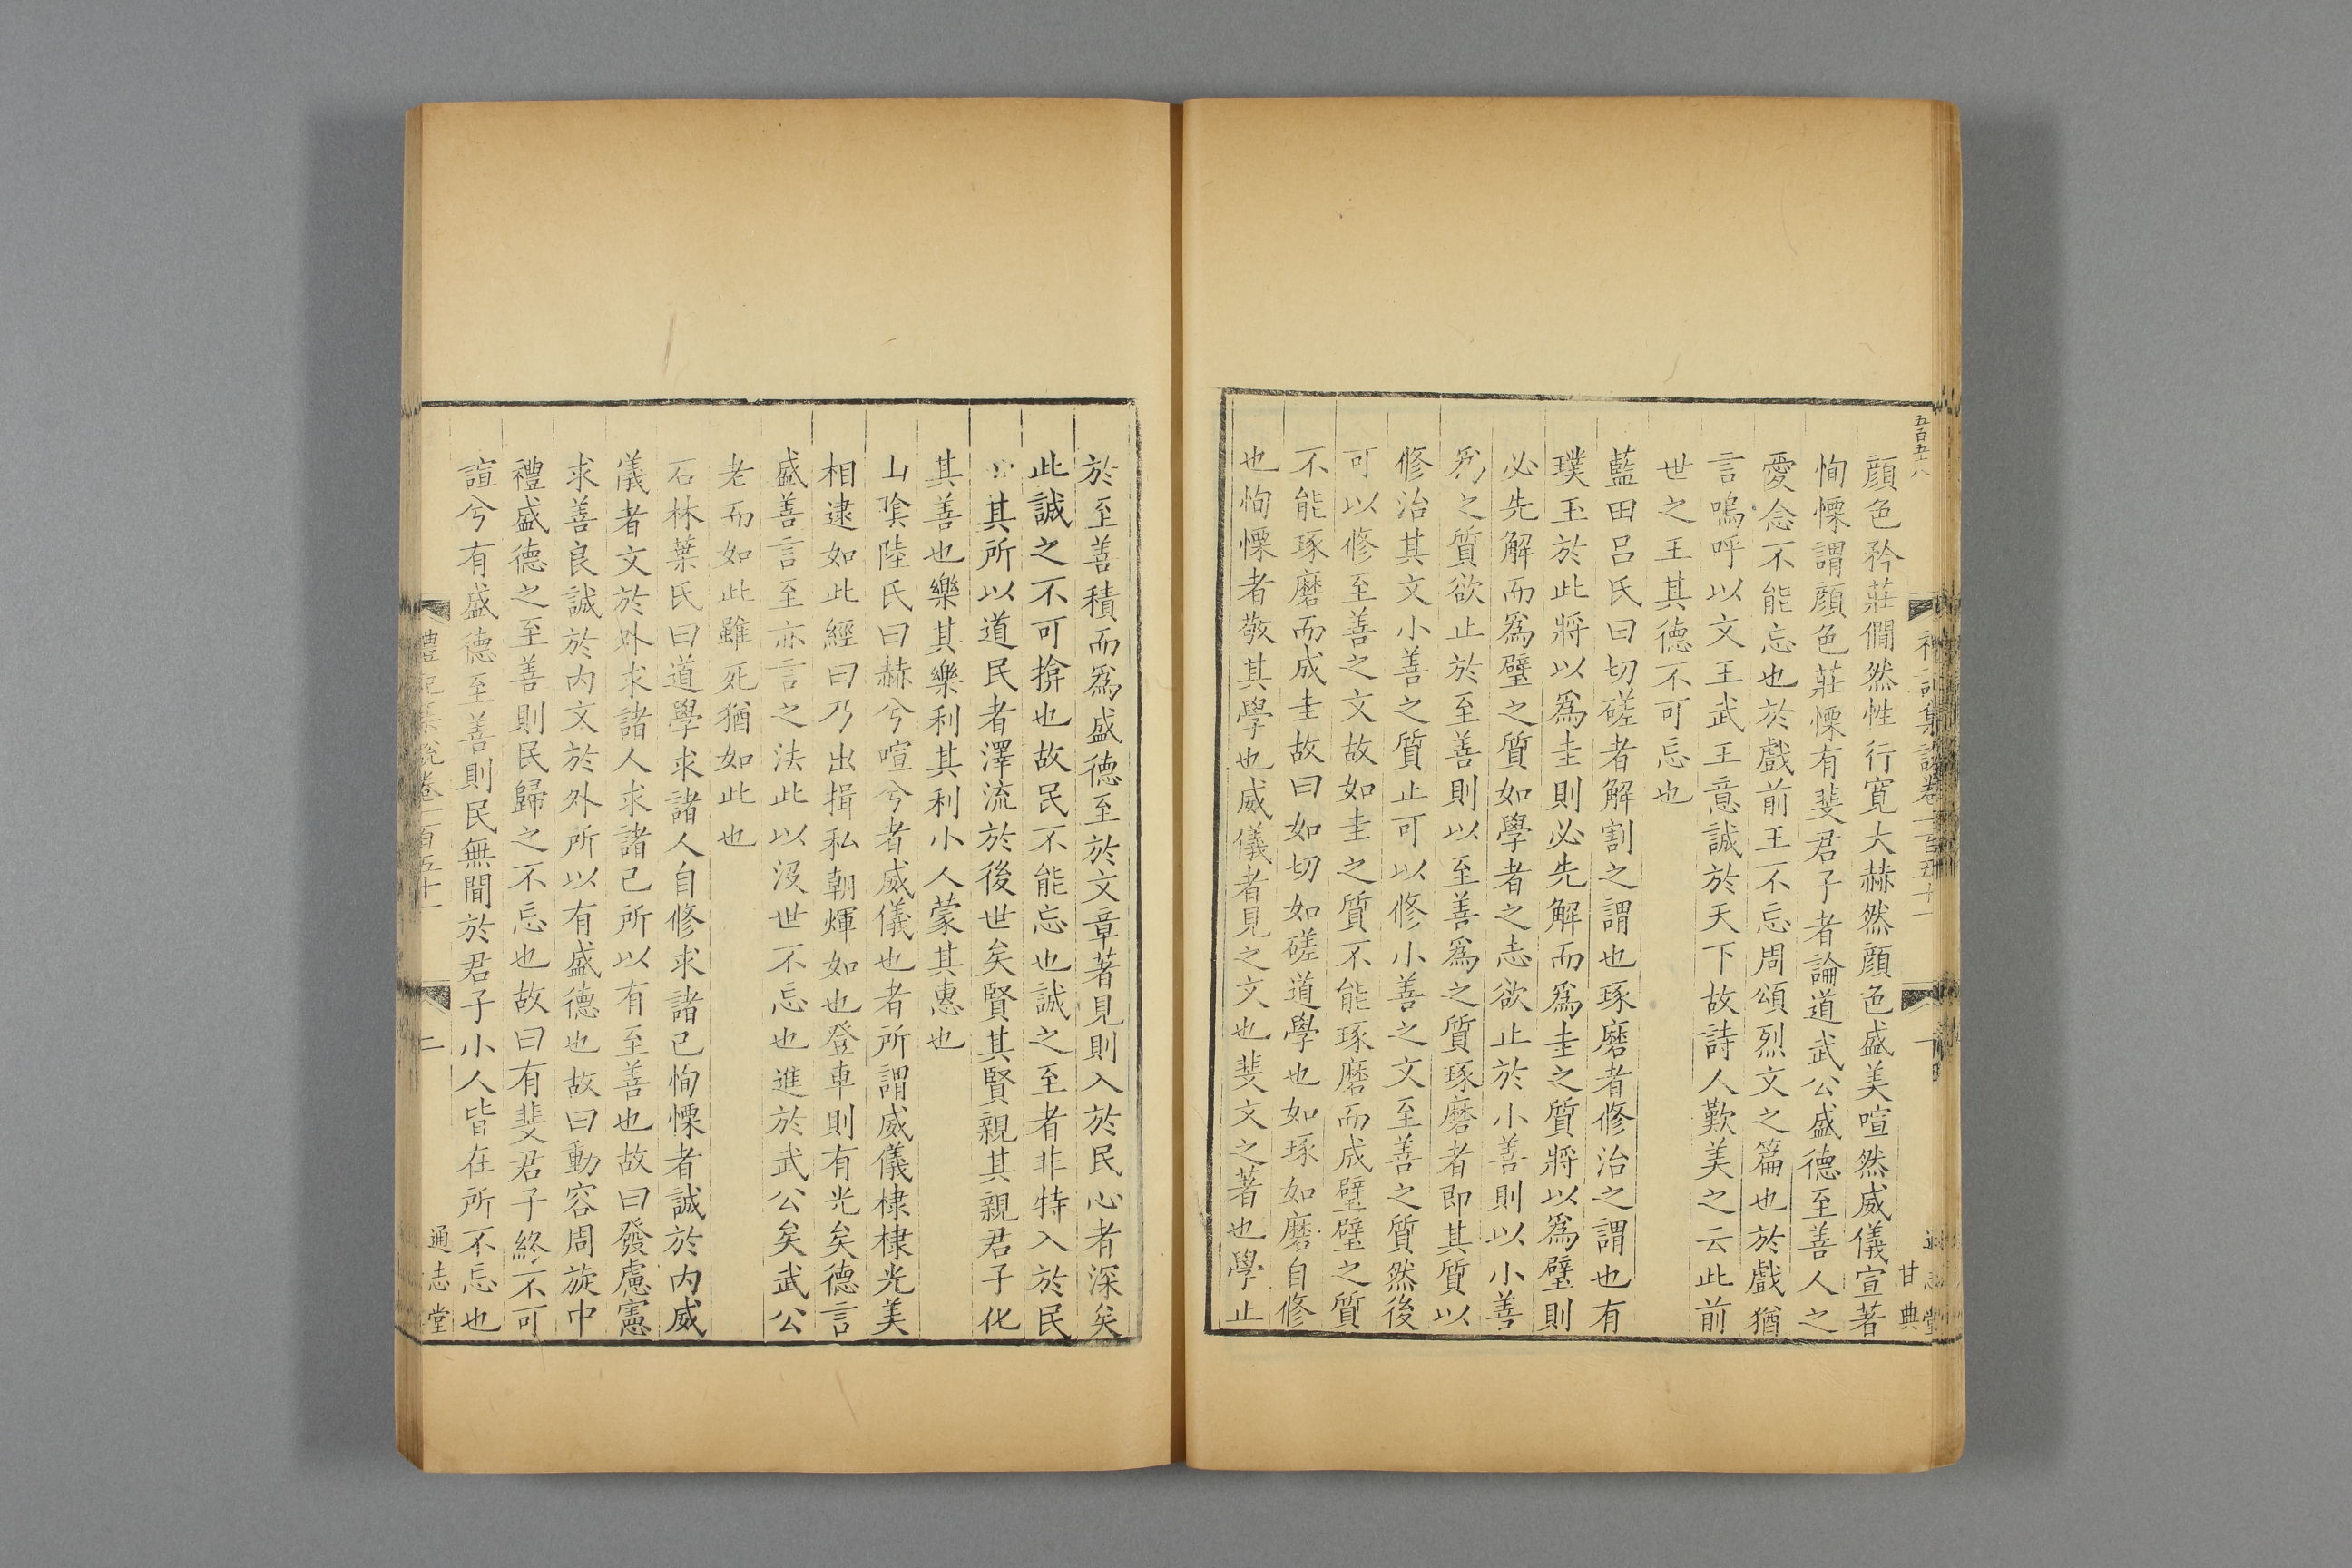 五百五十八
顔色矜莊僩然性行寛大赫然顔色盛美喧然威儀宣著
恂慄謂顔色莊慄有斐君子者論道武公盛德至善人之
愛念不能忘也於戲前王不忘周頌烈文之篇也於戲猶
言嗚呼以文王武王意誠於天下故詩人歎美之云此前
世之王其德不可忘也
藍田呂氏曰切磋者解割之謂也琢磨者修治之謂也有
璞玉於此將以爲圭則必先解而爲圭之質將以爲璧則
必先解而爲璧之質如學者之志欲止於小善則以小善
爲之質欲止於至善則以至善爲之質琢磨者即其質以
修治其文小善之質止可以修小善之文至善之質然後
可以修至善之文故如圭之質不能琢磨而成璧璧之質
不能琢磨而成圭故曰如切如磋道學也如琢如磨自修
也恂慄者敬其學也威儀者見之文也斐文之著也學止
禮記集說卷一百五十一
甘典
於至善積而爲盛德至於文章著見則入於民心者深矣
此誠之不可揜也故民不能忘也誠之至者非特入於民
其所以道民者澤流於後世矣賢其賢親其親君子化
其善也樂其樂利其利小人蒙其惠也
山陰陸氏曰赫兮喧兮者威儀也者所謂威儀棣棣光美
相逮如此經曰乃出揖私朝煇如也登車則有光矣德言
盛善言至亦言之法此以沒世不忘也進於武公矣武公
老而如此雖死猶如此也
石林葉氏曰道學求諸人自修求諸己恂慄者誠於内威
儀者文於外求諸人求諸己所以有至善也故曰發慮憲
求善良誠於内文於外所以有盛德也故曰動容周旋中
禮盛德之至善則民歸之不忘也故曰有斐君子終不可
諠兮有盛德至善則民無間於君子小人皆在所不忘也
禮記集說卷一百五十一
二
通志堂